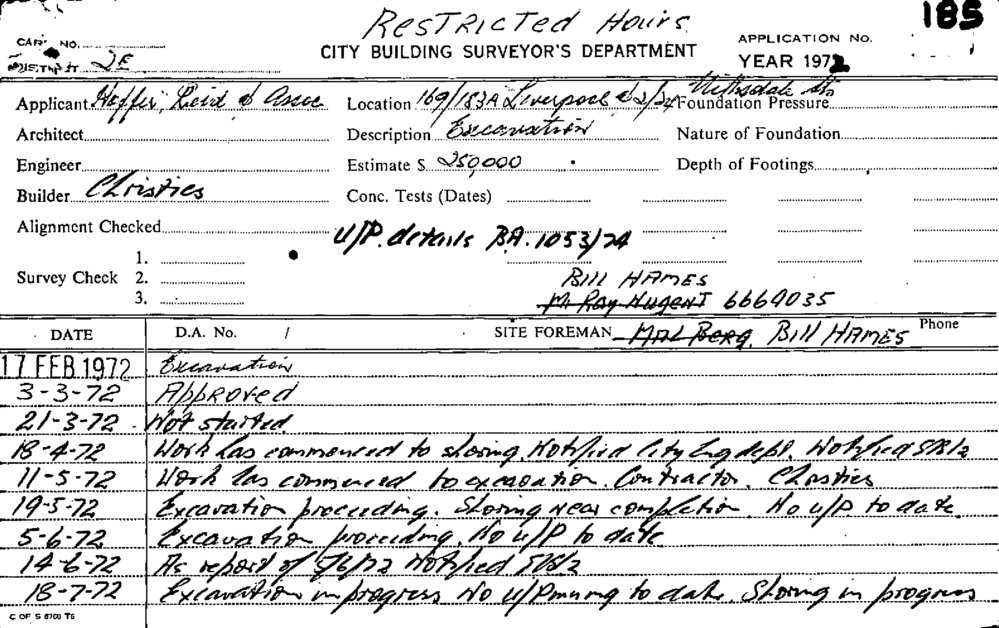 Restricted Hours
185
CARD NO.
DISTRICT 2E
CITY BUILDING SURVEYOR'S DEPARTMENT
APPLICATION No.
YEAR 1972
Applicant Hoffer, Reid & Assoc Location 169/183A Liverpool & 2/24 Nithsdale Sts Foundation Pressure
Architect Description Excavation Nature of Foundation
Engineer Estimate $ 250,000 Depth of Footings
Builder Christies Conc. Tests (Dates)
Alignment Checked
U/P. details BA. 1053/74
1.
Survey Check 2. Bill HAMES
3. M Ray Nugent 6669035
DATE D.A. No. / SITE FOREMAN Mal Berg. Bill HAMES Phone
17 FEB 1972 Excavation
3-3-72 Approved
21-3-72 Not started
18-4-72 Work has commenced to shoring. Notified City Eng dept. Notified
11-5-72 Work has commenced to excavation. Contractor. Christies
19-5-72 Excavation proceeding. Shoring near completion. No u/p to date.
5-6-72 Excavation proceeding. No u/p to date
14-6-72 As report of 5/6/72 Notified
18-7-72 Excavation in progress No u/pinning to date. Shoring in progress
C OF S 6760 TS